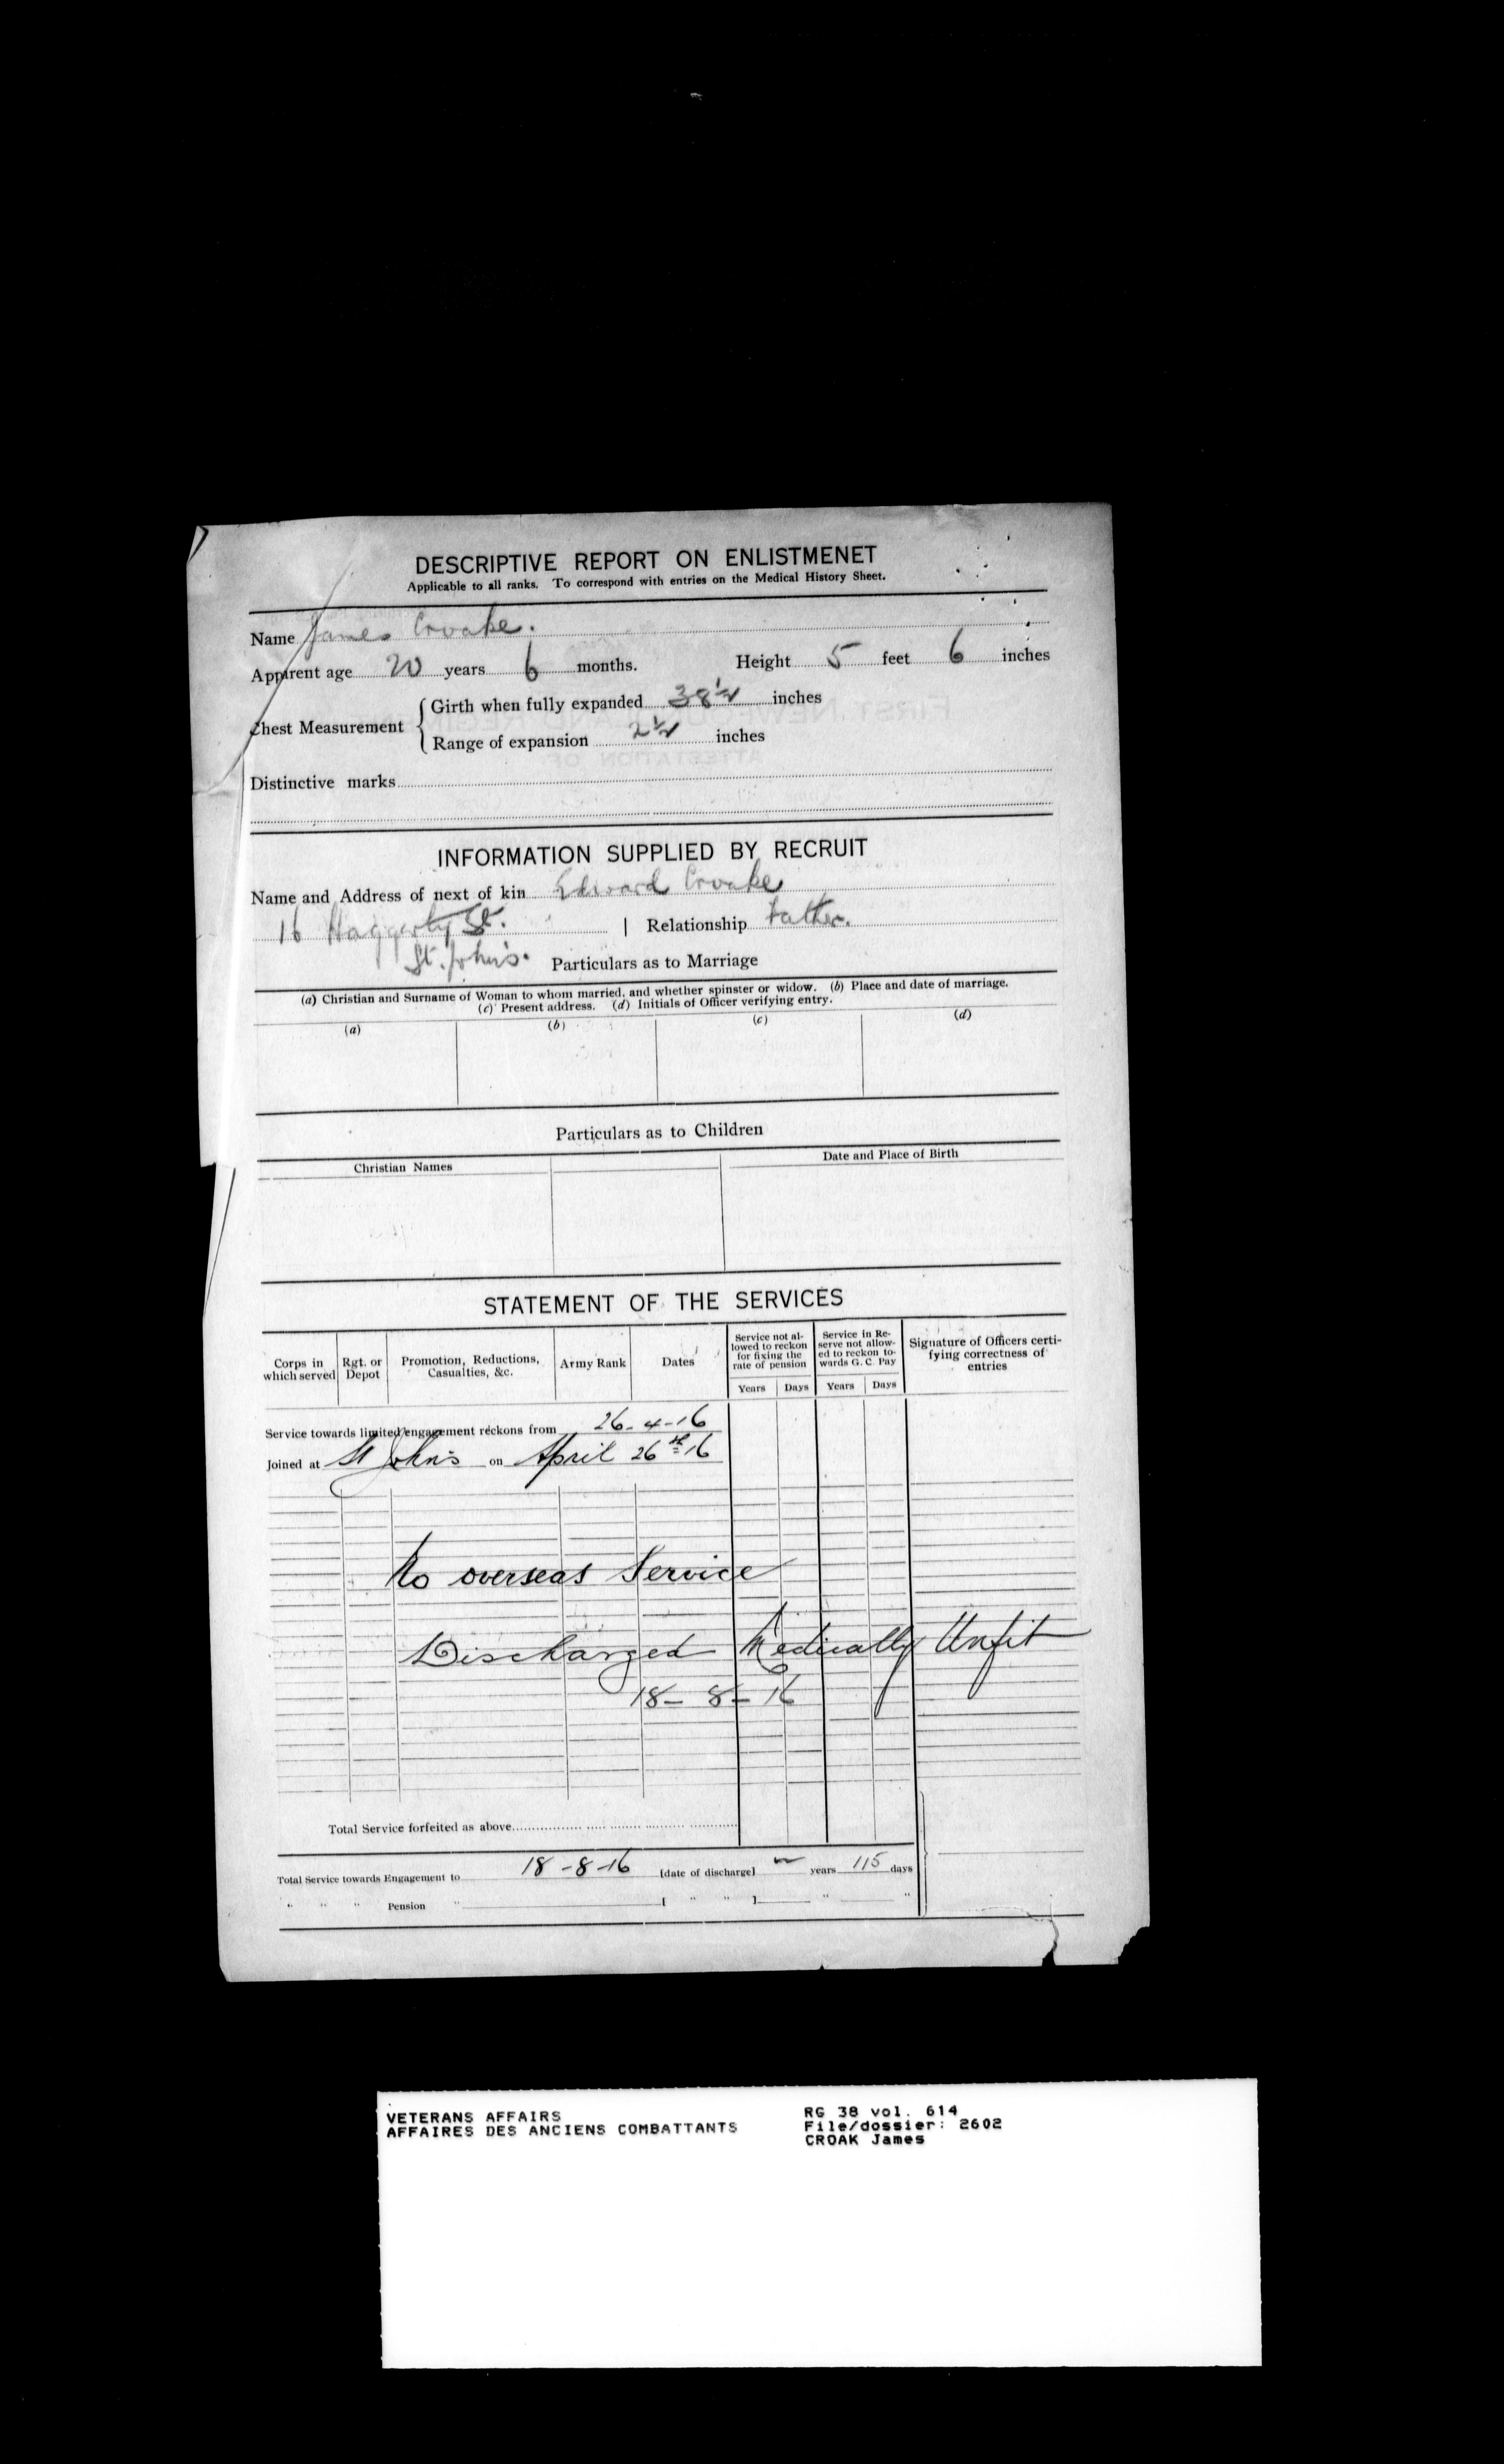 DESCRIPTIVE REPORT ON ENLISTMENET
Applicable to all ranks. To correspond with entries on the Medical History Sheet.
Name James Croake.
Apparent age 20 years 6 months. Height 5 feet 6 inches
Chest Measurement { Girth when fully expanded 38 1/2 inches
Range of expansion 2 1/2 inches
Distinctive marks
INFORMATION SUPPLIED BY RECRUIT
Name and Address of next of kin Edward Croake
16 Haggerty St. | Relationship Father.
St. John's.
Particulars as to Marriage
(a) Christian and Surname of Woman to whom married, and whether spinster or widow. (b) Place and date of marriage.
(c) Present address. (d) Initials of Officer verifying entry.
(a) (b) (c) (d)
Particulars as to Children
Christian Names Date and Place of Birth
STATEMENT OF THE SERVICES
Corps in which served Rgt. or Depot Promotion, Reductions, Casualties, &c. Army Rank Dates Service not allowed to reckon for fixing the rate of pension Service in Reserve not allowed to reckon towards G. C. Pay Signature of Officers certifying correctness of entries
Years Days Years Days
Service towards limited engagement reckons from 26-4-16
Joined at St John's on April 26th 16
No overseas Service
Discharged Medically Unfit
18-8-16
Total Service forfeited as above
Total Service towards Engagement to 18-8-16 [date of discharge] — years 115 days
" " " Pension " [ " " ] " "
VETERANS AFFAIRS
AFFAIRES DES ANCIENS COMBATTANTS
RG 38 vol. 614
File/dossier: 2602
CROAK James